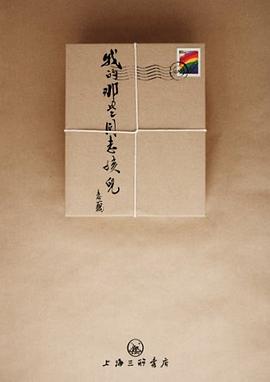 我的那些同志孩儿
上海三联书店